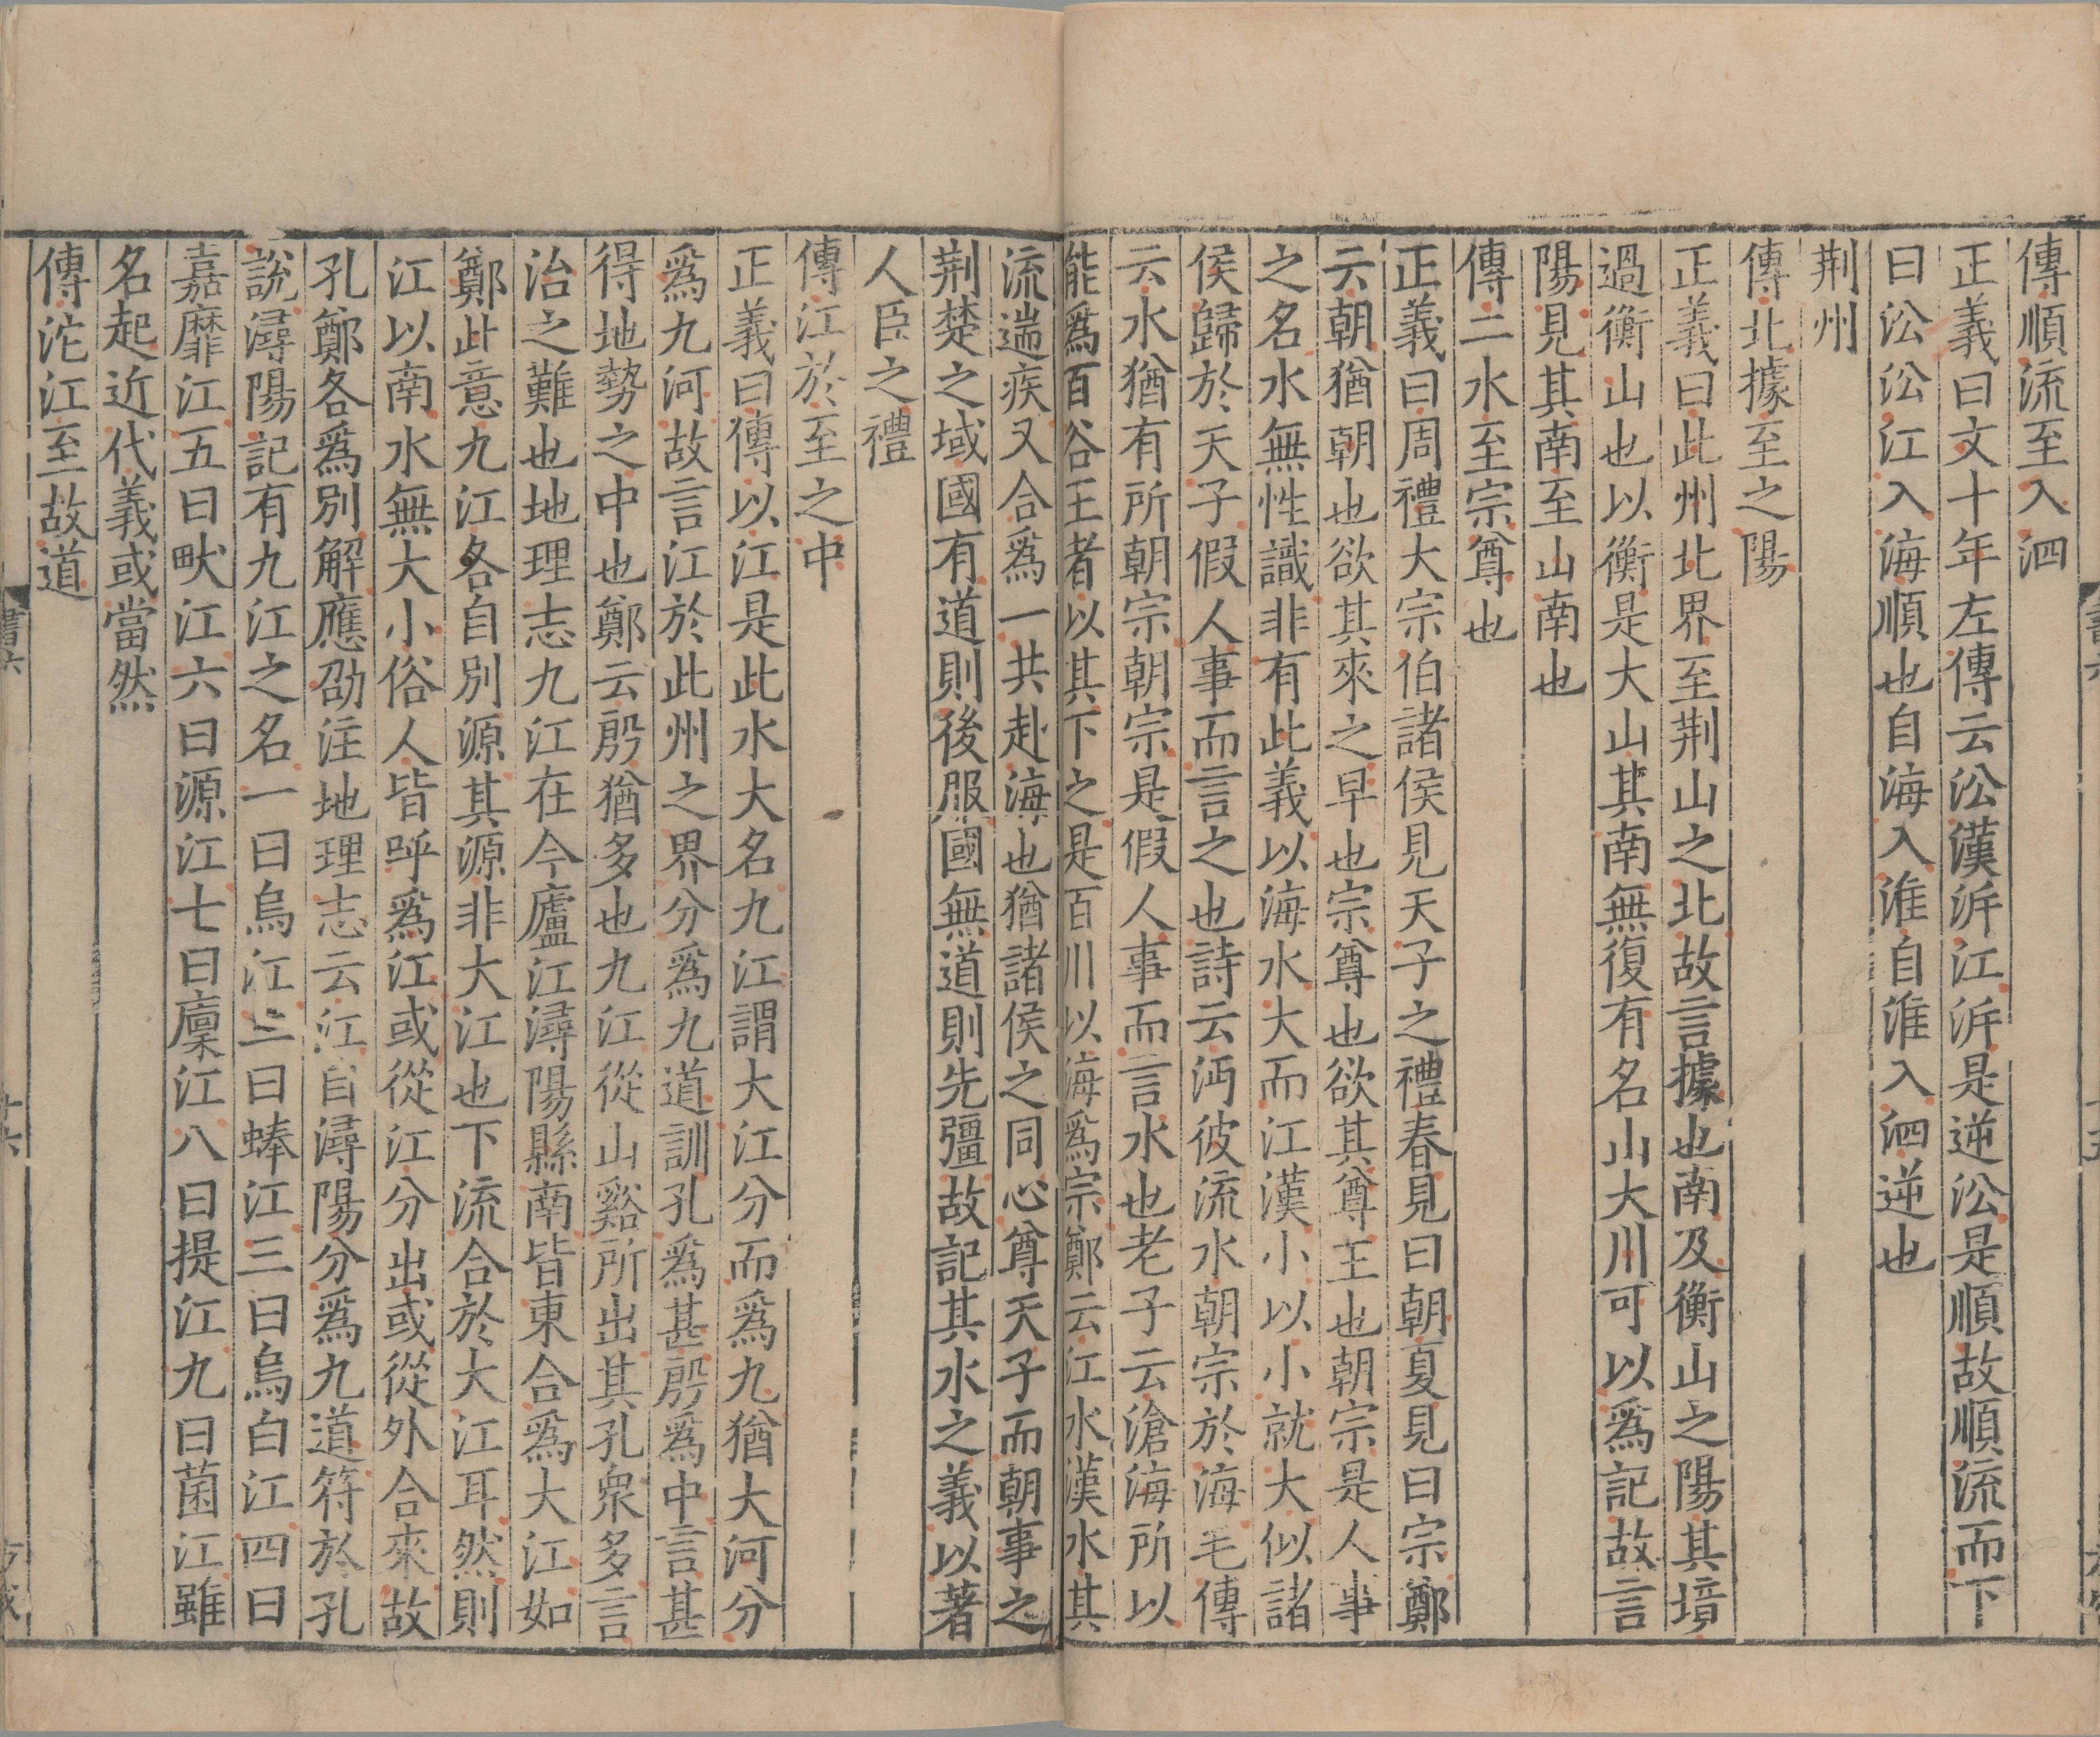 傳順流至入泗
正義曰文十年左傳云㳂漢泝江泝是逆㳂是順故順流而下
曰㳂㳂江入海順也自海入淮自淮入泗逆也
荆州
傳北據至之陽
正義曰此州北界至荆山之北故言據也南及衡山之陽其境
過衡山也以衡是大山其南無復有名山大川可以爲記故言
陽見其南至山南也
傳二水至宗尊也
正義曰周禮大宗伯諸侯見天子之禮春見曰朝夏見曰宗鄭
云朝猶朝也欲其來之早也宗尊也欲其尊王也朝宗是人事
之名水無性識非有此義以海水大而江漢小以小就大似諸
侯歸於天子假人事而言之也詩云沔彼流水朝宗於海毛傳
云水猶有所朝宗朝宗是假人事而言水也老子云滄海所以
能爲百谷王者以其下之是百川以海爲宗鄭云江水漢水其
流遄疾又合爲一共赴海也猶諸侯之同心尊天子而朝事之
荆楚之域國有道則後服國無道則先彊故記其水之義以著
人臣之禮
傳江於至之中
正義曰傳以江是此水大名九江謂大江分而爲九猶大河分
爲九河故言江於此州之界分爲九道訓孔爲甚殷爲中言甚
得地勢之中也鄭云殷猶多也九江從山谿所出其孔衆多言
治之難也地理志九江在今廬江潯陽縣南皆東合爲大江如
鄭此意九江各自別源其源非大江也下流合於大江耳然則
江以南水無大小俗人皆呼爲江或從江分出或從外合來故
孔鄭各爲別解應劭注地理志云江自潯陽分爲九道符於孔
說潯陽記有九江之名一曰烏江二曰蜯江三曰烏白江四曰
嘉靡江五曰畎江六曰源江七曰廩江八曰提江九曰菌江雖
名起近代義或當然
傳沱江至故道
書六
十六